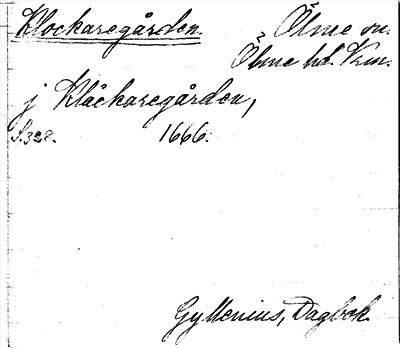 Klockaregården.
Ölme sn.
Ölme hd. Krm.
j Klåckaregården,
S. 328. 1666.
Gyllenius, Dagbok.